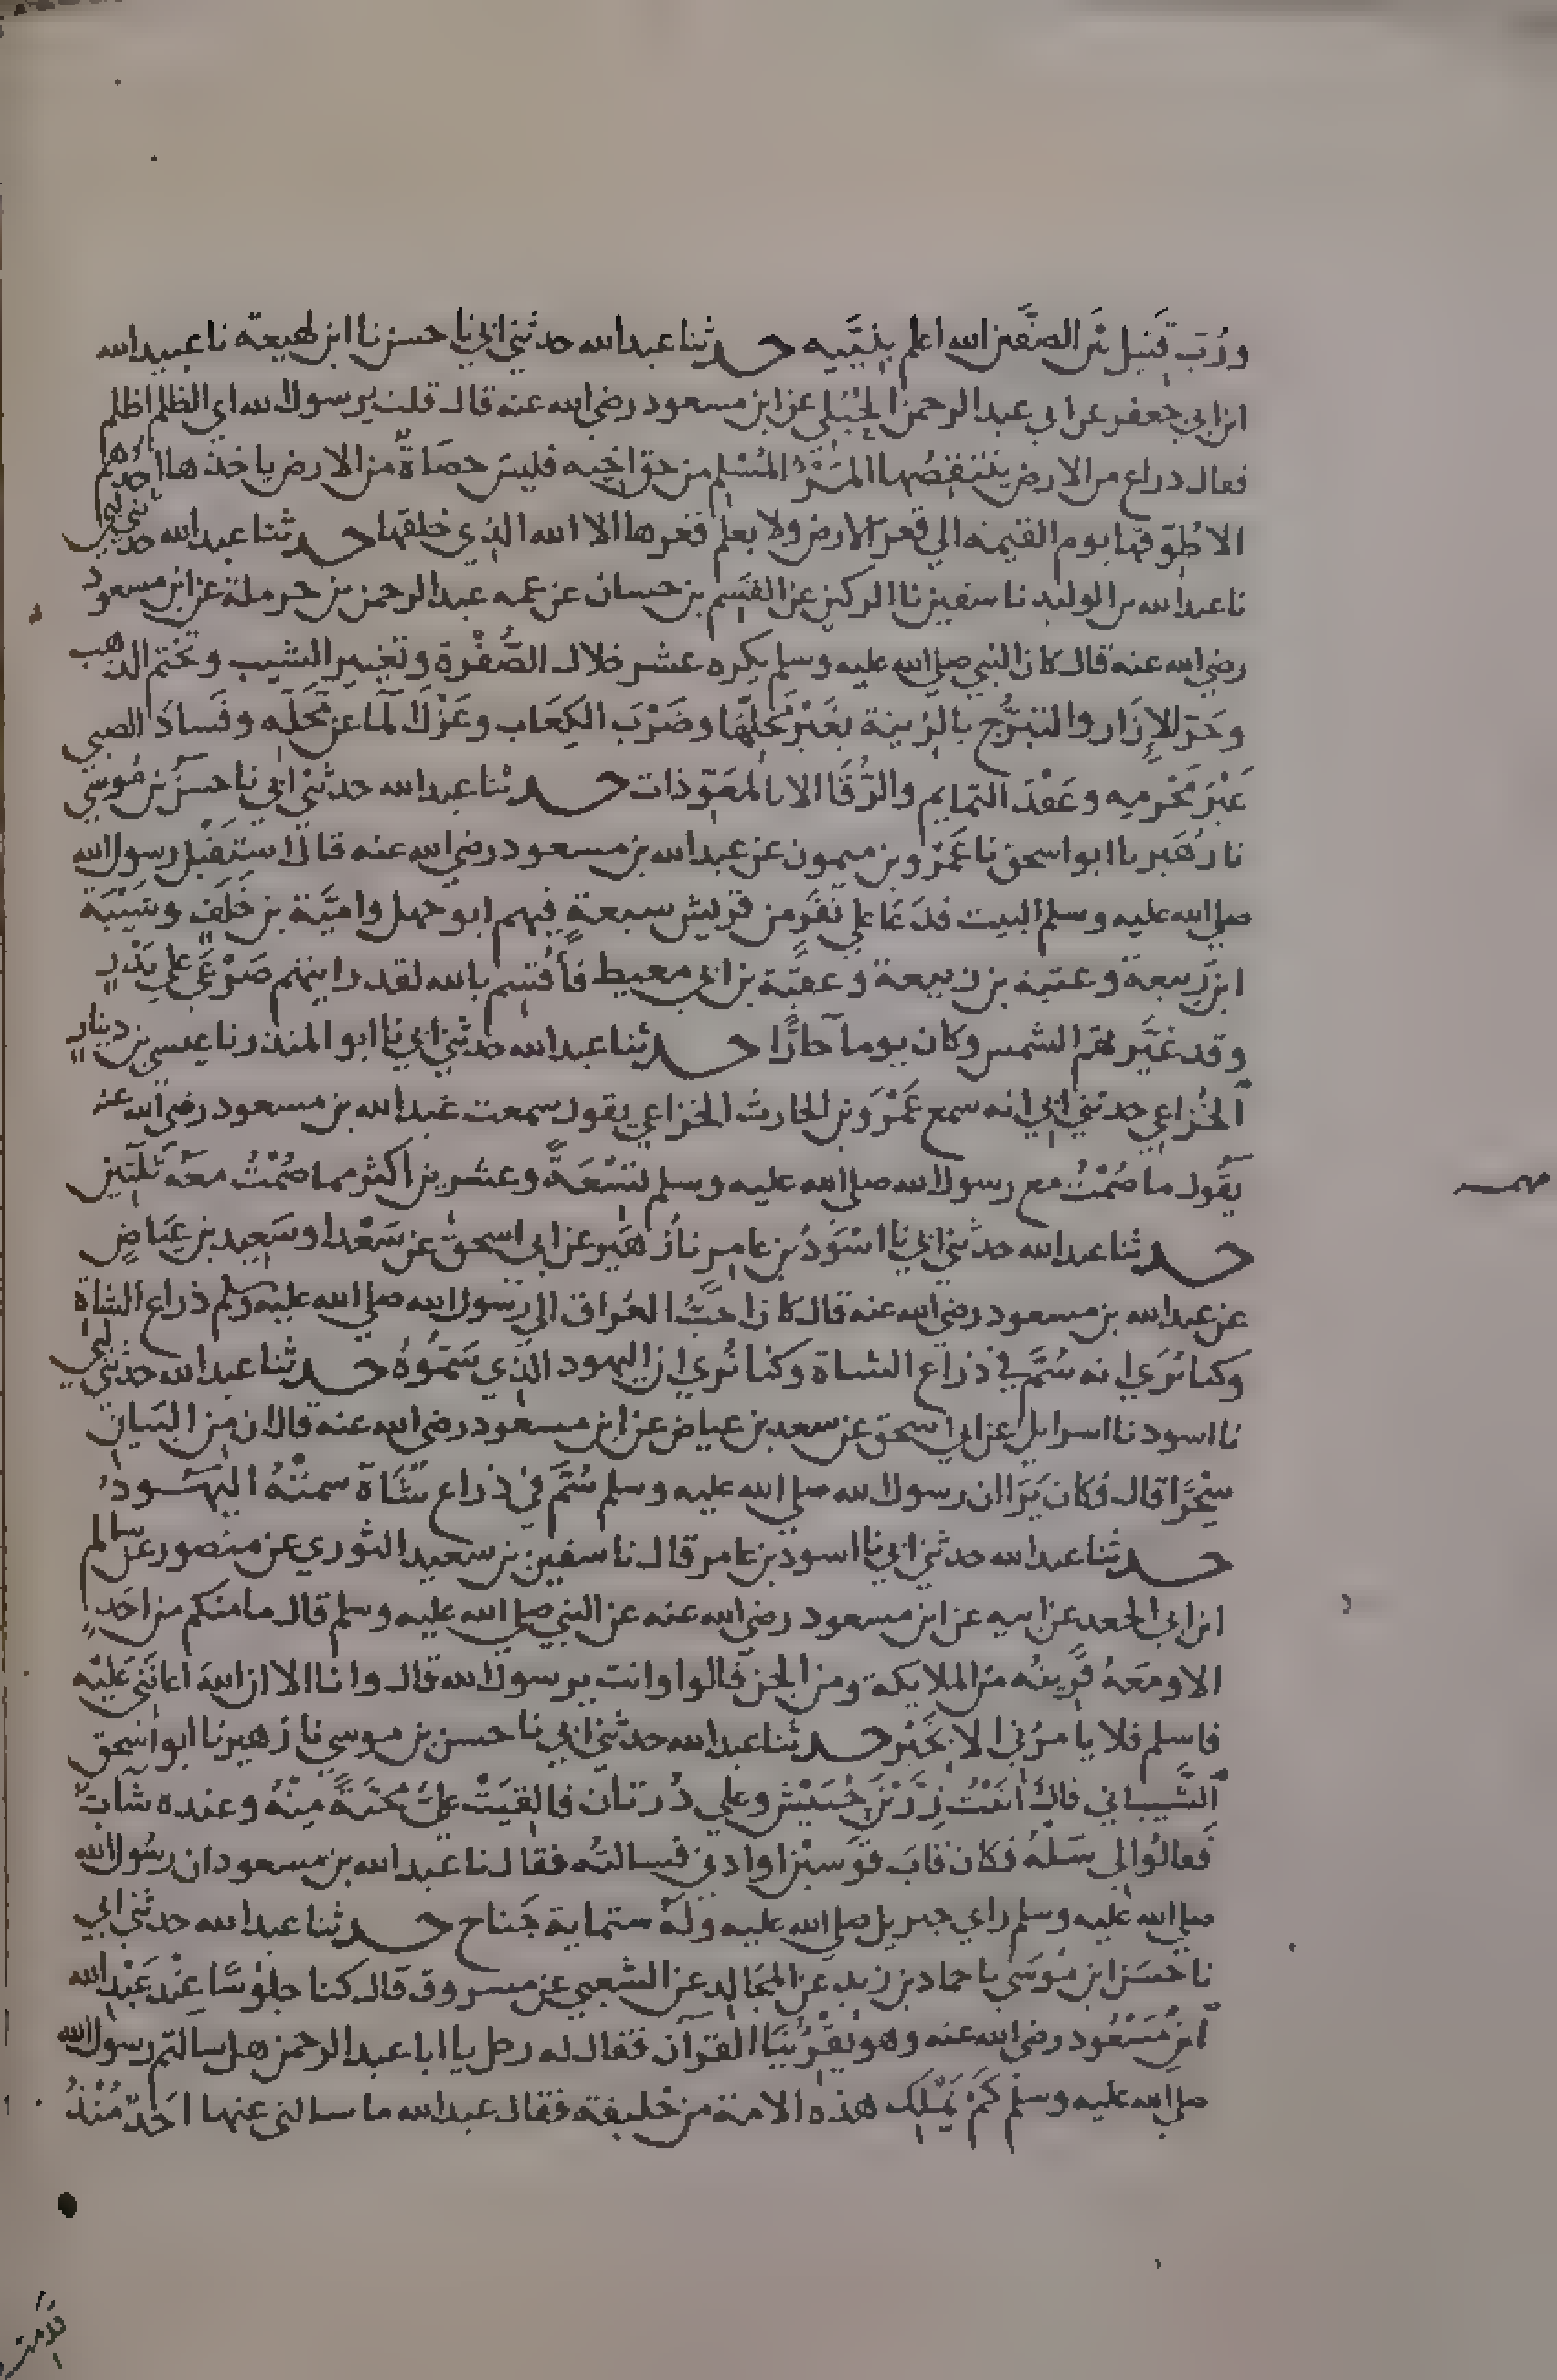 ورُبّ قتيل بَيْنَ الصفّين الله اعلم بنيّته حدثنا عبدالله حدثني ابي نا حسن نا ابن لهيعة نا عبيدالله
ابن ابي جعفر عن ابي عبد الرحمن الحُبُلي عن ابن مسعود رضي الله عنه قال قلت يرسول الله اي الظلم اظلم
فقال ذراع من الارض ينتقصُها المَرْءُ المُسْلِم من حق اخيه فليس حصَاةٌ من الارض ياخذها احدهم
الا طُوّقها يوم القيمة الي قعر الارض ولا يعلم قعرها الا الله الذي خلقها حدثنا عبدالله حدثني ابي
نا عبدالله بن الوليد نا سفين نا الركين عن القسم بن حسان عن عمه عبد الرحمن بن حرملة عن ابن مسعود
رضي الله عنه قال كان النبي صلي الله عليه وسلم يكره عشر خلال الصُّفْرة وتغيير الشيب وتختم الذهب
وجَرّ الإزَار والتبَرُّج بالزينة بغَيْر مَحَلّهَا وضَرْبَ الكِعَاب وعَزْلَ المآ عن مَحَلّه وفَسادَ الصبي
غَيْرَ مُحَرّمِه وعَقْدَ التمايم والرُّقَا الا بالمعَوّذات حدثنا عبدالله حدثني ابي نا حسَنُ بن مُوسَي
نا زُهَير نا ابو اسحق نا عَمْرو بن ميمون عن عبدالله بن مسعود رضي الله عنه قال استَقْبَل رسول الله
صلي الله عليه وسلم البيت فدَعَا علي نَفَرٍ من قريش سبعةٍ فيهم ابو جهل واميَّة بن خَلَفٍ وشَيْبَة
ابن ربيعة وعتبة بن ربيعة وعقبَة بن ابي معيط فأُقْسِم بالله لقد رايتهم صَرْعَي علي بَدْرٍ
وقد غيَّرتهم الشمس وكان يوماً حارًّا حدثنا عبدالله حدثني ابي نا ابو المنذر نا عيسي بن دينارٍ
الخُزاعي حدثني ابي انه سمع عَمْرَو بن الحارث الخزاعي يقول سمعت عبدالله بن مسعود رضي الله عنه
يَقُول ما صُمْتُ مع رسول الله صلي الله عليه وسلم تسْعَةً وعشرين اكثر مما صُمْتُ معَهُ ثَلٰثين
حدثنا عبدالله حدثني ابي نا اسْوَدُ بن عامِرٍ نا زُهَير عن ابي اسحق عن سَعْد او سَعِيد بن عِيَاضٍ
عن عبدالله بن مسعود رضي الله عنه قال كان احَبُّ العُراق الي رسول الله صلي الله عليه وسلم ذراع الشاة
وكنا نُرَي انه سُمَّ في ذراع الشاة وكنا نُري ان اليهود الذي سَمّوهُ حدثنا عبدالله حدثني ابي
نا اسود نا اسرايل عن ابي اسحق عن سعد بن عياض عن ابن مسعود رضي الله عنه قال ان مِن البَيان
سِحْرًا قال فكان يَرَا ان رسول الله صلي الله عليه وسلم سُمَّ في ذراع شَاة سمتْهُ اليَهُودُ
حدثنا عبدالله حدثني ابي نا اسود بن عامر قال نا سفين بن سعيد الثوري عن منصور عن سالم
ابن ابي الجعد عن ابيه عن ابن مسعود رضي الله عنه عن النبي صلي الله عليه وسلم قال ما منكم من احَدٍ
الا ومَعَهُ قَرِينُه من الملايكة ومن الجن قالوا وانت يرسول الله قال وانا الا ان الله اعانَنِي عَلَيْه
فاسلم فلا يامرُني الا بخَيْر حدثنا عبدالله حدثني ابي نا حسن بن موسي نا زهير نا ابو اسحق
الشّيباني قال اتَيْتُ زِرَّ بْنَ حُبَيْش وعلي دُرّتان فالقِيَتْ عليَّ مَحَبَّةً مِنْهُ وعنده شَابٌ
فقالُوا لي سَلْهُ فكان قابَ قوسَيْن او ادني فسالته فقال نا عبدالله بن مسعود ان رسُول الله
صلي الله عليه وسلم راي جبريل صلي الله عليه ولَهُ ستماية جَناح حدثنا عبدالله حدثني ابي
نا حسَن ابن مُوسَي نا حماد بن زيد عن المجَالِد عن الشعبي عن مسروق قال كنا جلوْسًا عِنْد عَبْدالله
ابْنِ مَسْعُود رضي الله عنه وهو يُقْرِئنَا القرآن فقال له رجل يا ابا عبد الرحمن هل سالتم رسول الله
صلي الله عليه وسلم كَمْ يَمْلِك هذه الامة من خليفة فقال عبدالله ما سالني عنها احَدٌ مُنْذُ
قدمت